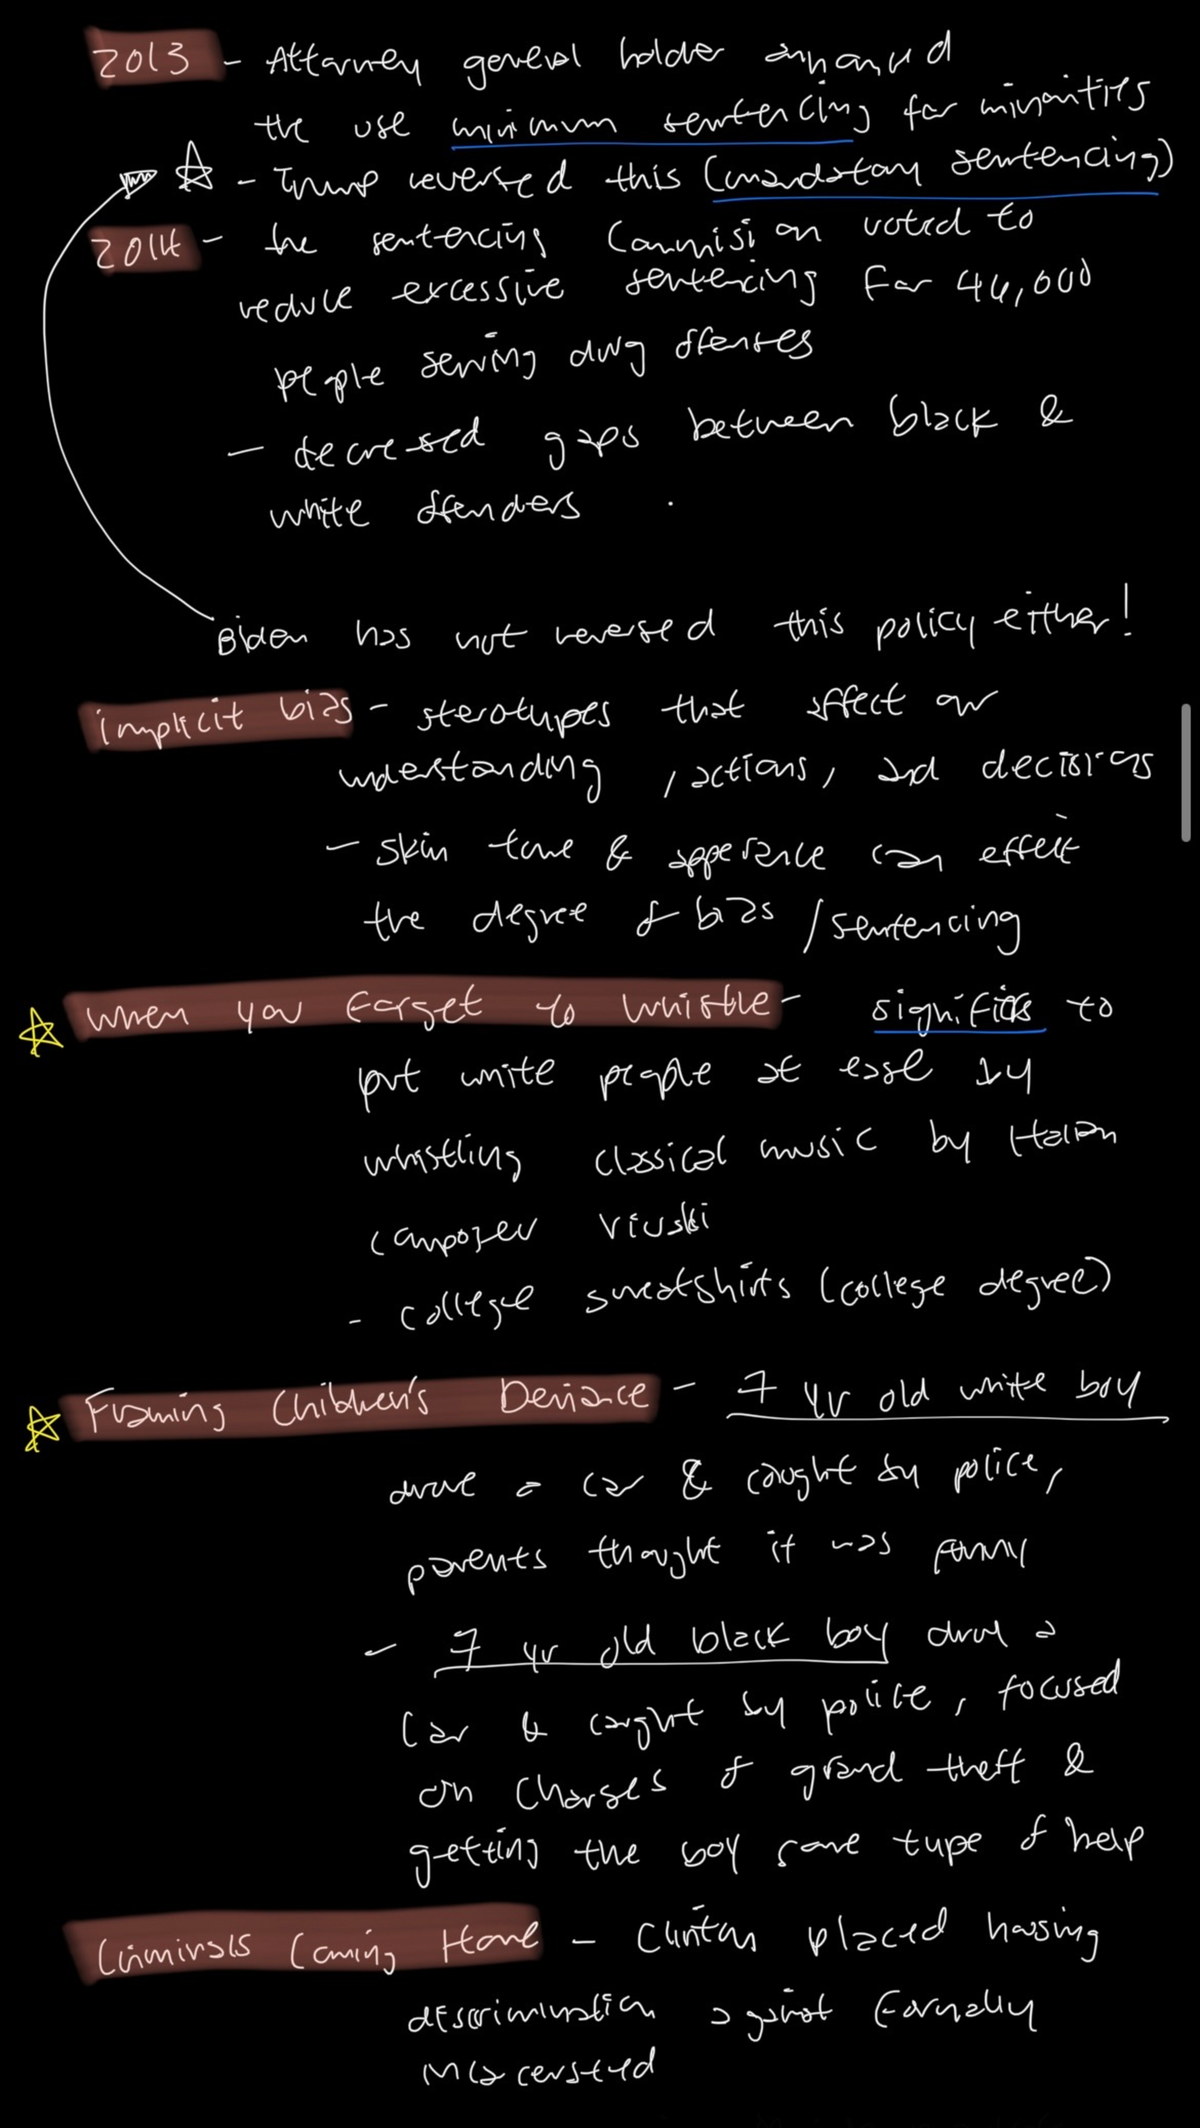 2013 - Attorney general holder
the use minimum sentencing for minorities
- Trump reversed this (mandatory sentencing)
2014 - the sentencing Commision voted to
reduce excessive sentencing for 46,000
people serving drug offenses
- decreased gaps between black &
white offenders
Biden has not reversed this policy either!
implicit bias - sterotypes that affect our
understanding, actions, and decisions
- skin tone & apperence can effect
the degree of bias / sentencing
When you forget to whistle - signifies to
put white people at ease by
whistling classical music by Italian
composer
- college sweatshirts (college degree)
Framing Children's Deviance - 7 yr old white boy
drove a car & caught by police,
parents thought it was funny
- 7 yr old black boy drove a
car & caught by police, focused
on charges of grand theft &
getting the boy some type of help
Criminals Coming Home - Clinton placed housing
descrimination against formerly